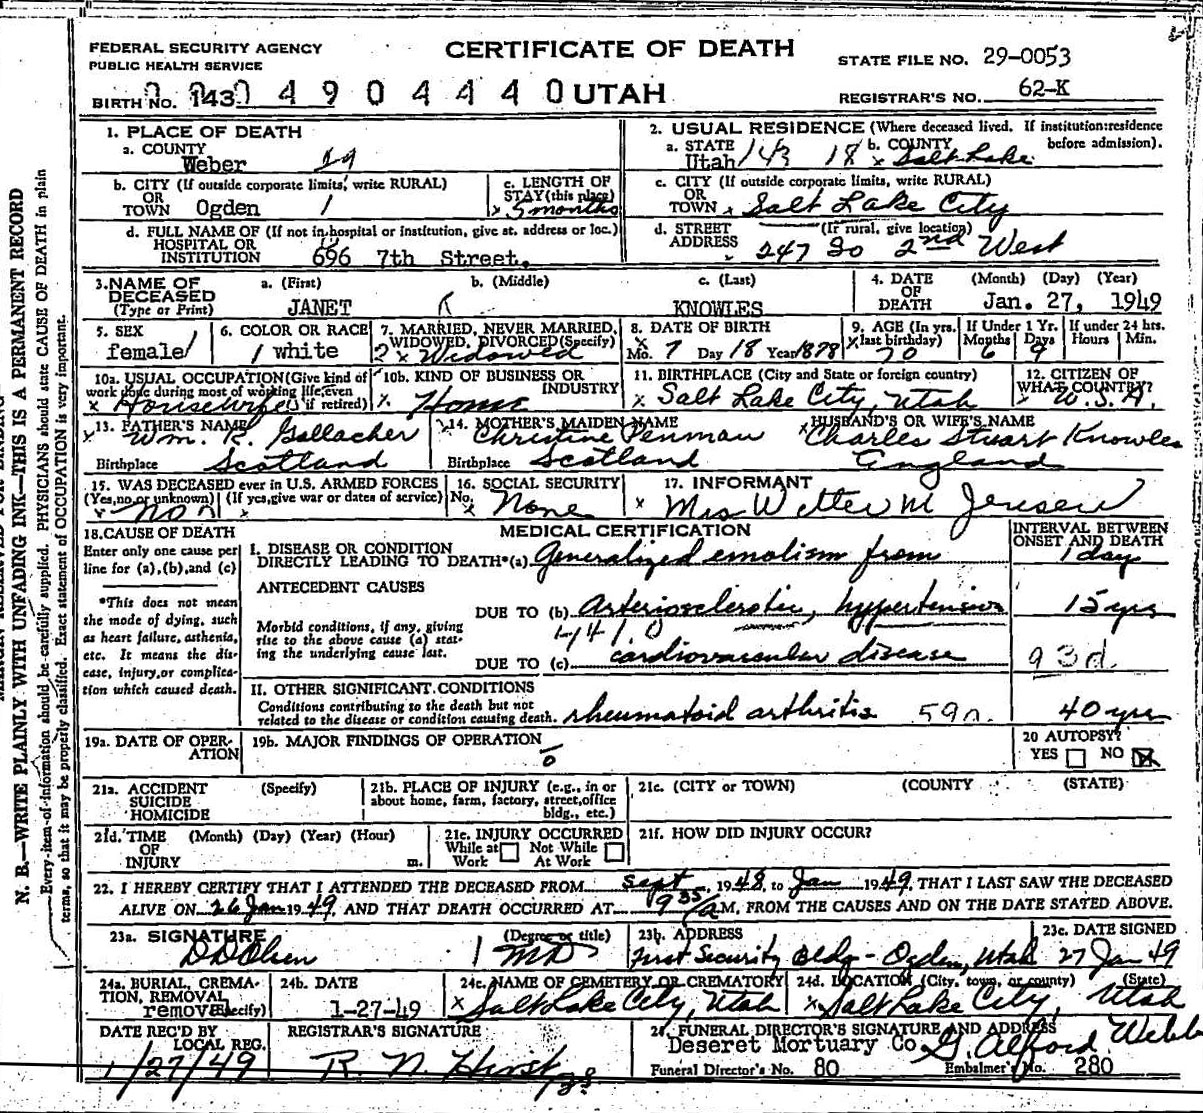 FEDERAL SECURITY AGENCY
PUBLIC HEALTH SERVICE
CERTIFICATE OF DEATH
STATE FILE NO. 29-0053
BIRTH NO. 143 0 4 9 0 4 4 4 0 UTAH
REGISTRAR'S NO. 62-K
1. PLACE OF DEATH
a. COUNTY
Weber 29
2. USUAL RESIDENCE (Where deceased lived. If institution: residence before admission).
a. STATE b. COUNTY
Utah 143 18 x Salt Lake
b. CITY (If outside corporate limits, write RURAL)
OR
TOWN Ogden 1
c. LENGTH OF
STAY (this place)
x 5 months
c. CITY (If outside corporate limits, write RURAL)
OR
TOWN x Salt Lake City
d. FULL NAME OF (If not in hospital or institution, give st. address or loc.)
HOSPITAL OR
INSTITUTION 696 7th Street.
d. STREET (If rural, give location)
ADDRESS x 247 So 2nd West
3. NAME OF DECEASED
(Type or Print)
a. (First) b. (Middle) c. (Last)
JANET R KNOWLES
4. DATE OF DEATH (Month) (Day) (Year)
Jan. 27, 1949
5. SEX
female 1
6. COLOR OR RACE
1 white
7. MARRIED, NEVER MARRIED,
WIDOWED, DIVORCED (Specify)
2 x Widowed
8. DATE OF BIRTH
Mo. 7 Day 18 Year 1878
9. AGE (In yrs. last birthday)
x 70
If Under 1 Yr.
Months Days
6 9
If under 24 hrs.
Hours Min.
10a. USUAL OCCUPATION (Give kind of
work done during most of working life, even
if retired)
x Housewife
10b. KIND OF BUSINESS OR
INDUSTRY
x Home
11. BIRTHPLACE (City and State or foreign country)
x Salt Lake City, Utah
12. CITIZEN OF
WHAT COUNTRY?
x U.S.A.
13. FATHER'S NAME
x Wm. R. Gallacher
Birthplace Scotland
14. MOTHER'S MAIDEN NAME
Christine Penman
Birthplace Scotland
x HUSBAND'S OR WIFE'S NAME
Charles Stuart Knowles
England
15. WAS DECEASED ever in U.S. ARMED FORCES
(Yes, no, or unknown) (If yes, give war or dates of service)
x No x
16. SOCIAL SECURITY
No. x None
17. INFORMANT
x Mrs. Welter M Jensen
18. CAUSE OF DEATH
Enter only one cause per
line for (a), (b), and (c)
*This does not mean
the mode of dying, such
as heart failure, asthenia,
etc. It means the dis-
ease, injury, or complica-
tion which caused death.
MEDICAL CERTIFICATION
INTERVAL BETWEEN
ONSET AND DEATH
I. DISEASE OR CONDITION
DIRECTLY LEADING TO DEATH* (a) Generalized emolism from 1 day
ANTECEDENT CAUSES
DUE TO (b) Arteriosclerotic, hypertensive 15 yrs
Morbid conditions, if any, giving
rise to the above cause (a) stat-
ing the underlying cause last.
441.0
DUE TO (c) cardiovascular disease 93d
II. OTHER SIGNIFICANT CONDITIONS
Conditions contributing to the death but not
related to the disease or condition causing death. rheumatoid arthritis 59a. 40 yrs
19a. DATE OF OPER-
ATION
19b. MAJOR FINDINGS OF OPERATION
0
20 AUTOPSY?
YES NO
21a. ACCIDENT (Specify)
SUICIDE
HOMICIDE
21b. PLACE OF INJURY (e.g., in or
about home, farm, factory, street, office
bldg., etc.)
21c. (CITY OR TOWN) (COUNTY) (STATE)
21d. TIME (Month) (Day) (Year) (Hour)
OF
INJURY m.
21e. INJURY OCCURRED
While at Not While
Work At Work
21f. HOW DID INJURY OCCUR?
22. I HEREBY CERTIFY THAT I ATTENDED THE DECEASED FROM Sept, 1948, to Jan 1949, THAT I LAST SAW THE DECEASED
ALIVE ON 26 Jan 1949, AND THAT DEATH OCCURRED AT 9 35/a M, FROM THE CAUSES AND ON THE DATE STATED ABOVE.
23a. SIGNATURE (Degree or title)
D D Olsen 1 MD
23b. ADDRESS
First Security Bldg - Ogden, Utah
23c. DATE SIGNED
27 Jan 49
24a. BURIAL, CREMA-
TION, REMOVAL
(Specify)
removal
24b. DATE
1-27-49
24c. NAME OF CEMETERY OR CREMATORY
x Salt Lake City, Utah
24d. LOCATION (City, town, or county) (State)
x Salt Lake City, Utah
DATE REC'D BY
LOCAL REG.
1/27/49
REGISTRAR'S SIGNATURE
R. N. Hirst
FUNERAL DIRECTOR'S SIGNATURE AND ADDRESS
Deseret Mortuary Co G. Alford Webb
Funeral Director's No. 80 Embalmer's No. 280
N. B.—WRITE PLAINLY WITH UNFADING INK—THIS IS A PERMANENT RECORD
Every item of information should be carefully supplied. PHYSICIANS should state CAUSE OF DEATH in plain
terms, so that it may be properly classified. Exact statement of OCCUPATION is very important.